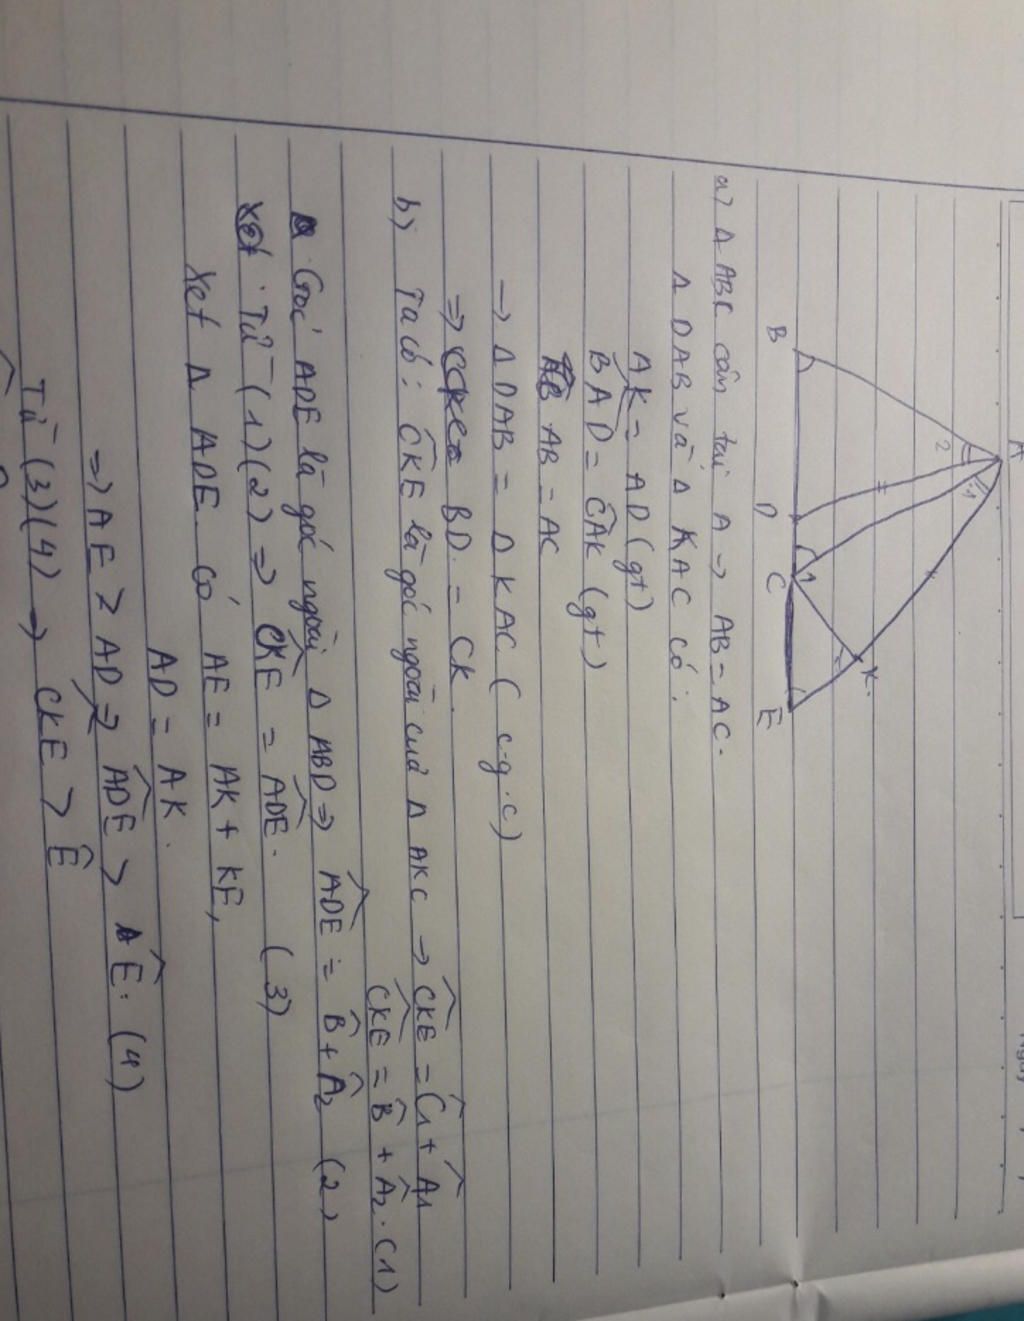 A
1
2
K
B
D
C
1
E
a) Δ ABC cân tại A → AB = AC.
Δ DAB và Δ KAC có:
AK = AD (gt)
BÂD = CÂK (gt)
AB = AC
→ Δ DAB = Δ KAC (c-g.c)
⇒ BD = CK.
b) Ta có: CK̂E là góc ngoài của Δ AKC → CK̂E = Ĉ1 + Â1
CK̂E = B̂ + Â2. (1)
Góc ADE là góc ngoài Δ ABD ⇒ AD̂E = B̂ + Â2 (2)
Từ (1)(2) ⇒ CK̂E = AD̂E. (3)
Xét Δ ADE có AE = AK + KE,
AD = AK.
⇒ AE > AD ⇒ AD̂E > Ê: (4)
Từ (3)(4) → CKE > Ê